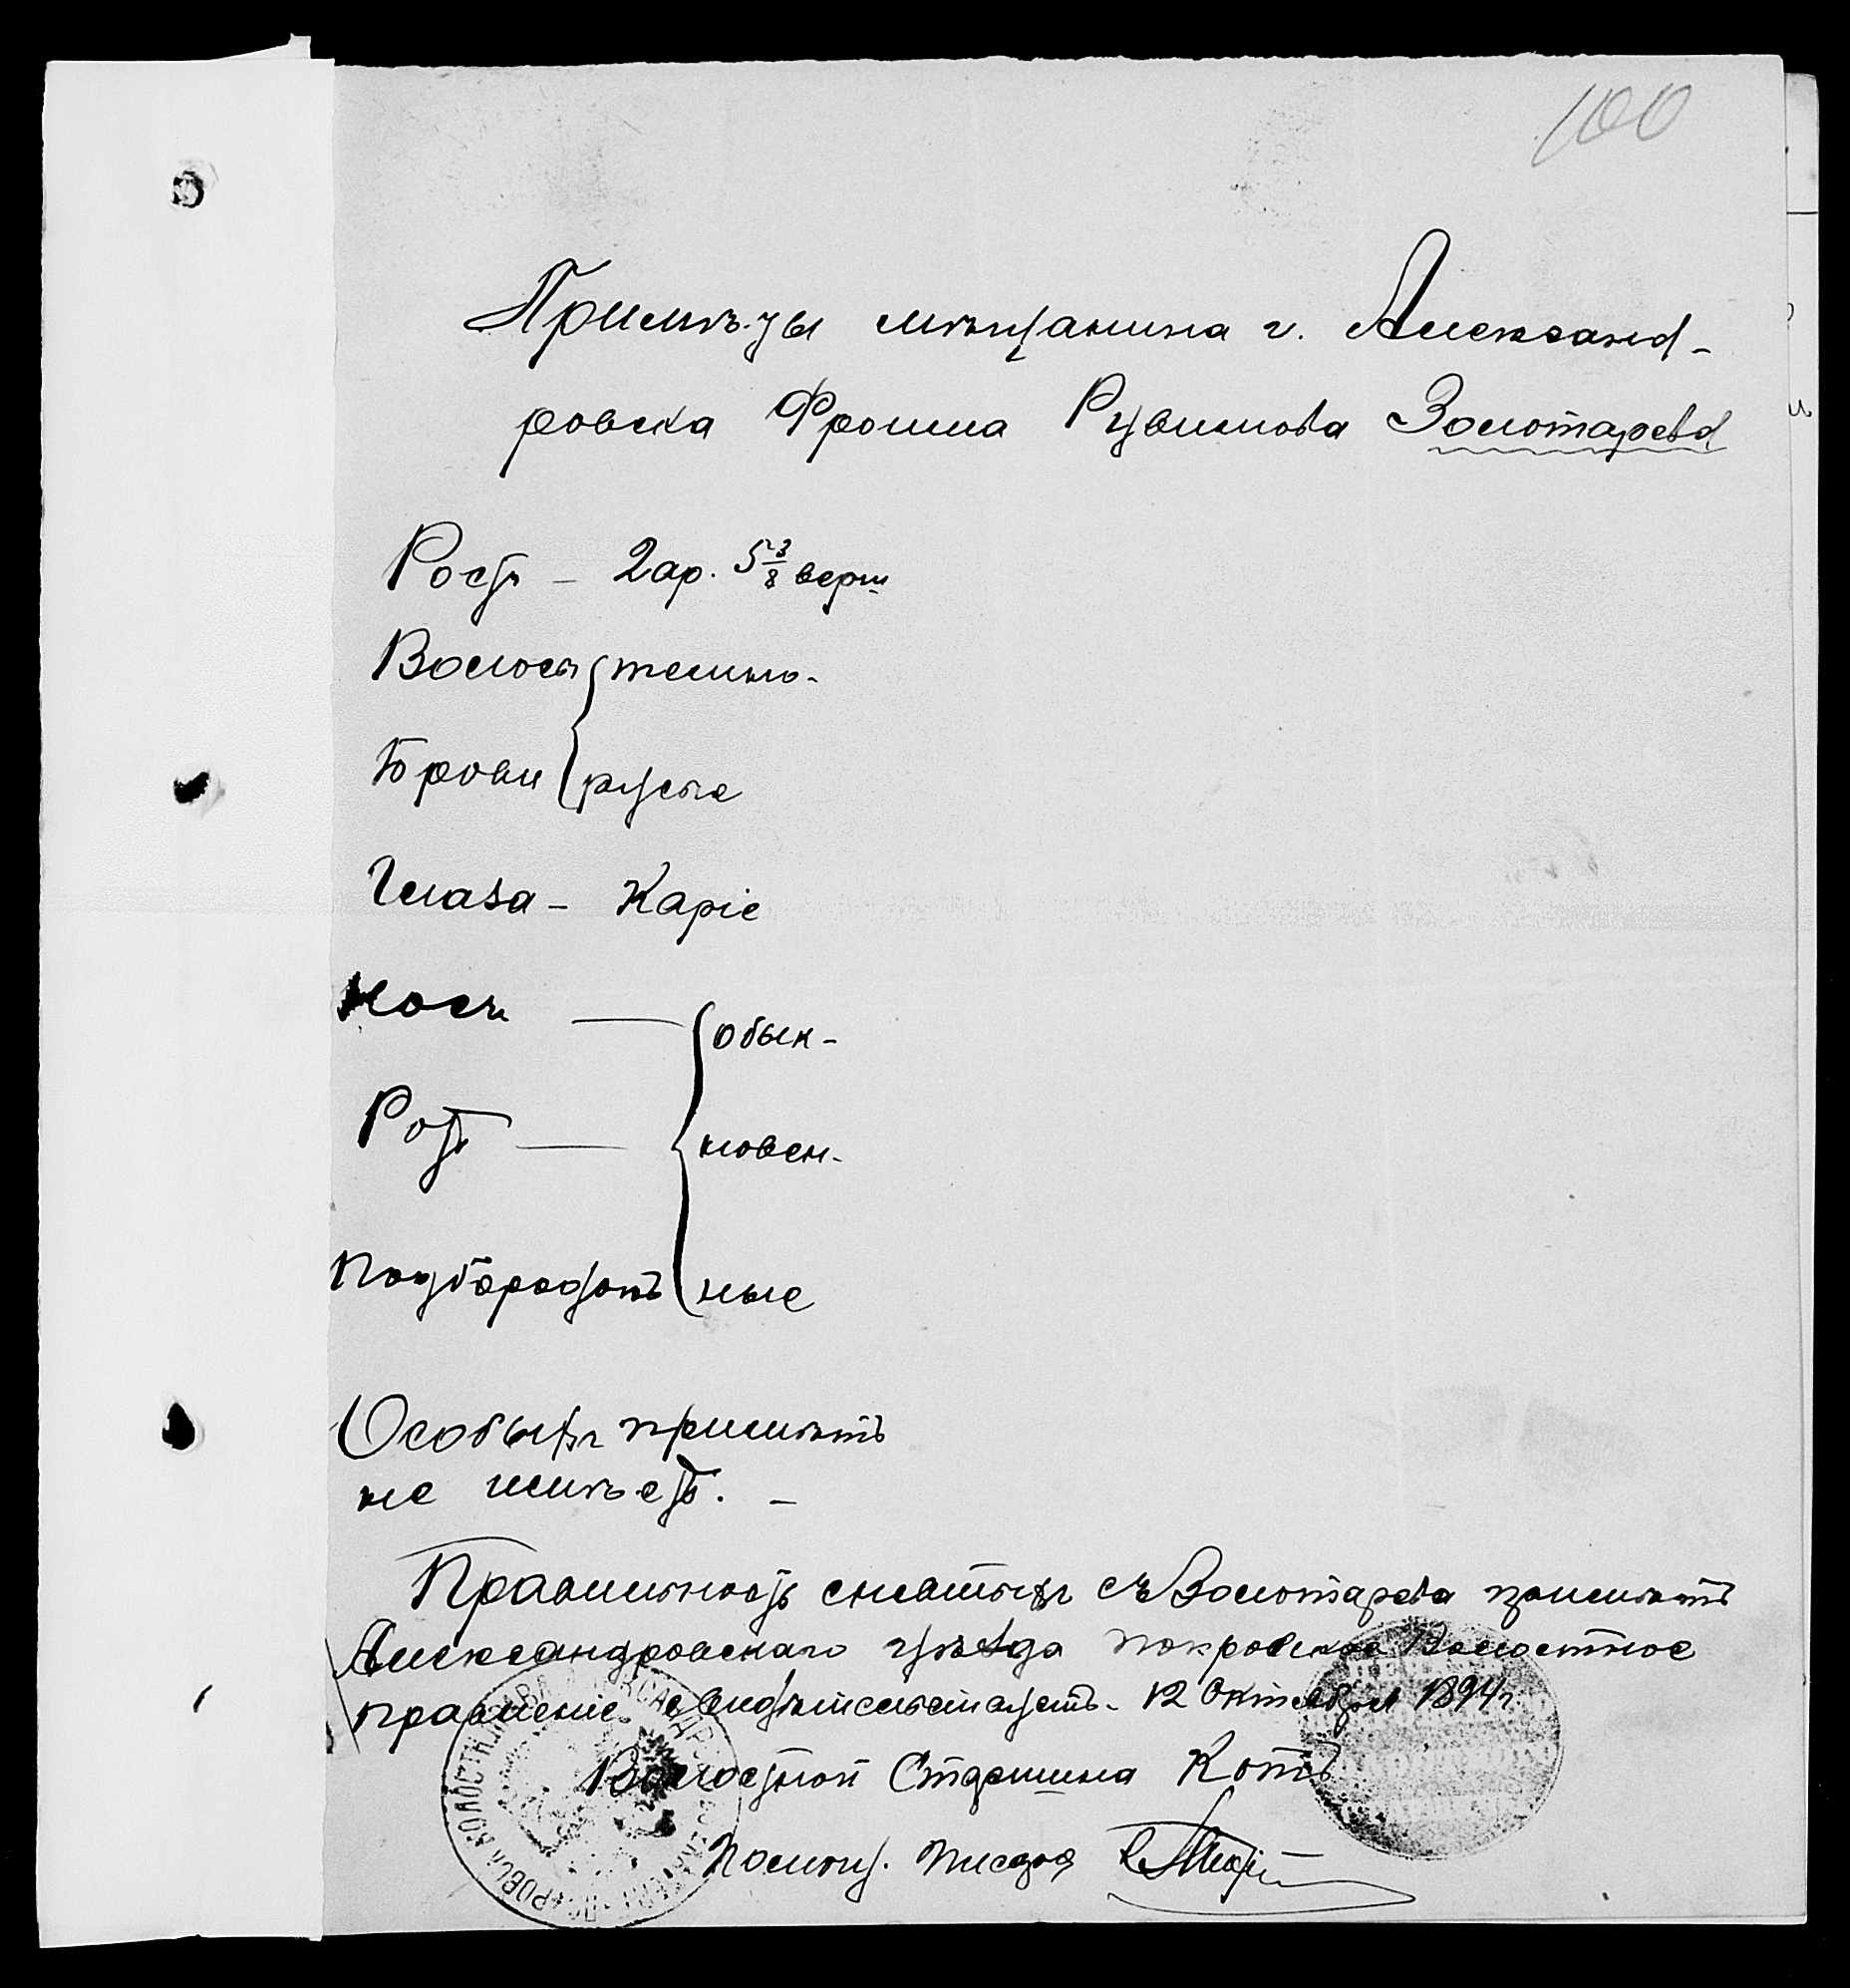 100
Примѣты мѣщанина г. Александ-
ровска Фроима Рувимова Золотарева
Ростъ – 2 ар. 5 3/8 верш
Волосы { темно-
Брови { русые
Глаза – Каріе
Носъ — { обык-
Ротъ — { новен-
Подбородокъ { ные
Особыхъ примѣтъ
не имѣетъ. –
Правильность снятыхъ съ Золотарева примѣтъ
Александровскаго уѣзда Покровское Волостное
правленіе свидѣтельствуетъ. 12 Октября 1894 г.
Волостной Старшина Котъ
Помощ. Писаря